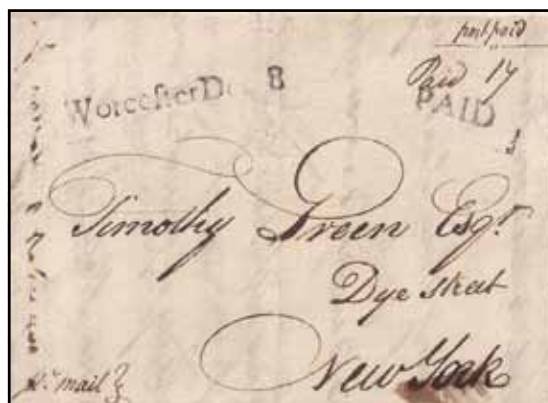 post paid
Paid 17
WorcesterDe 8
PAID
Timothy Green Esqr.
Dye street
New York
pr. mail